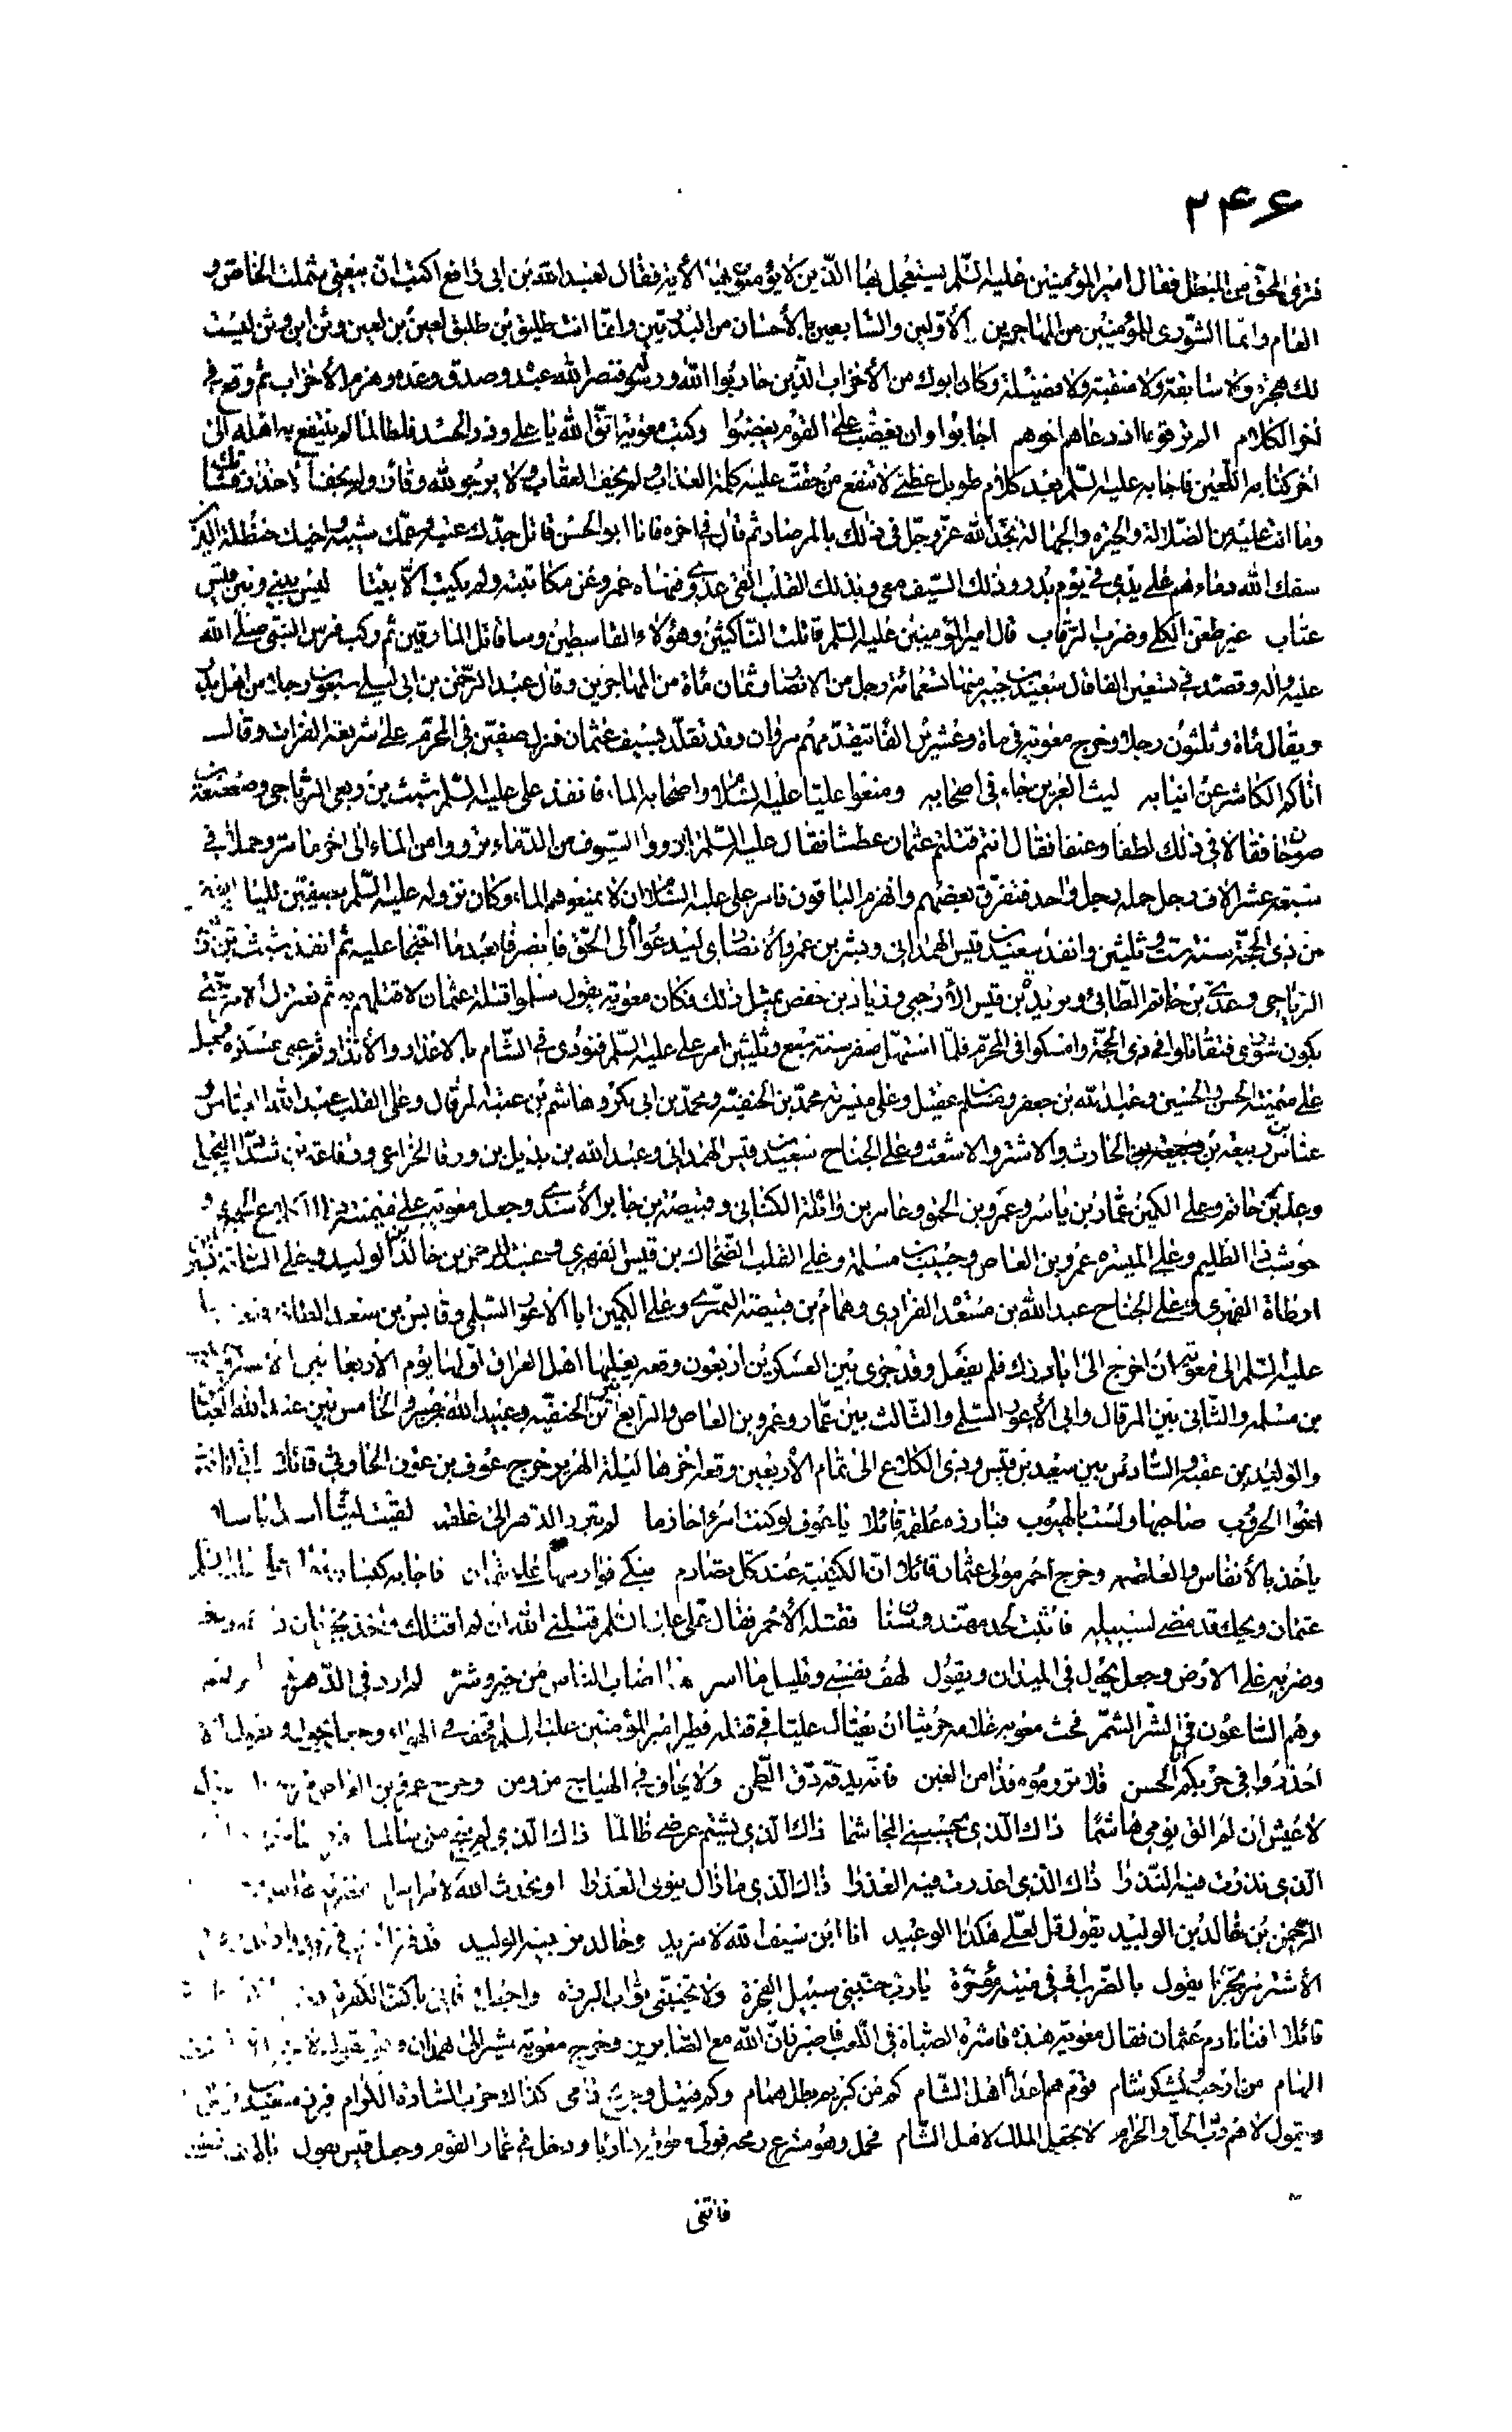 ۲۴۶
فترى المحق من المبطل فقال امير المؤمنين عليه السلم يستعجل بها الذين لا يؤمنون بها الأية فقال لعبد الله بن ابى رافع اكتب ان بيعتى شملت الخاص و
العام وانما الشورى للمؤمنين من المهاجرين الأولين والسابعين بالأحسان من البدريين وانما انت طليق بن طليق لعين بن لعين وثن ابن وثن ليست
لك هجرة ولا سابقة ولا منقبة ولا فضيلة وكان ابوك من الأحزاب الذين حاربوا الله ورسوله فنصر الله عبده وصدق وعده وهزم الأحزاب ثم وقع فى
اخر الكلام الم تر قوما اذ دعاهم اخوهم اجابوا وان يغضب على القوم يغضبوا وكتب معوية اتق الله يا على وذر الحسد فلطالما لم ينتفع به اهله الى
اخر كتابه اللعين فاجابه عليه السلم بعد كلام طويل عظتى لا تنفع من حقت عليه كلمة العذاب ولم يخف العقاب ولا يرجو لله وقارا ولم يخف
وما انت عليه من الضلالة والحيرة والجهالة تجد الله عز وجل فى ذلك بالمرصاد ثم قال فى اخره فانا ابو الحسن قاتل جدك عتبة وعمك شيبة واخيك حنظلة الذين
سفك الله دماءهم على يدى فى يوم بدر وذلك السيف معى وبذلك القلب القى عدوى فنهاه عمرو عن مكاتبته ولم يكتب الا بيتا ليس بينى وبين قيس
عتاب غير طعن الكلى وضرب الرقاب قال امير المؤمنين عليه السلم قاتلت الناكثين وهؤلاء القاسطين وساقاتل المارقين ثم ركب فرس النبى صلى الله
عليه واله وقصده فى تسعين الفا قال سعيد بن جبير منها تسعمائة رجل من الانصار وثمان مأة من المهاجرين وقال عبد الرحمن بن ابى ليلى سبعون رجلا من اهل بدر
ويقال مأة وثلثون رجلا وخرج معوية فى مأة وعشرين الفا يتقدمهم مروان وقد تقلد بسيف عثمان فنزل صفين فى المحرم على شريعة الفرات وقال
اتاكم الكاشر عن انيابه ليث العرين جاء فى اصحابه ومنعوا عليا عليه السلام واصحابه الماء فانفذ على عليه السلم شبث بن ربعى الرياحى وصعصعة بن
صوحان فقالا فى ذلك لطفا وعنفا فقال انتم قتلتم عثمان عطشا فقال عليه السلم ارووا السيوف من الدماء ترووا من الماء الى اخر ما مر وحملا فى
سبعة عشر الاف رجل حملة رجل واحد فتفرق بعضهم وانهزم الباقون فامر على عليه السلام ان لا يمنعوهم الماء وكان نزوله عليه السلم بصفين لليال بقين
من ذى الحجة سنة ست وثلثين وانفذ سعيد بن قيس الهمدانى وبشر بن عمرو الأنصارى ليدعوا الى الحق فانصرفا بعد ما احتجا عليه ثم انفذ شبث بن ربعى
الرياحى وعدى بن حاتم الطائى ويزيد بن قيس الأرحبى وزياد بن حفص بمثل ذلك فكان معوية يقول سلموا قتلة عثمان لاقتلهم به ثم نعتزل الامر حتى
يكون شورى فتقاتلوا فى ذى الحجة وامسكوا فى المحرم فلما استهل صفر سنة سبع وثلثين امر على عليه السلم فنودى فى الشام بالاعذار والأنذار ثم عبى عسكره فجعل
على ميمنته الحسن والحسين وعبد الله بن جعفر ومسلم بن عقيل وعلى ميسرته محمد بن الحنفية ومحمد بن ابى بكر وهاشم بن عتبة المرقال وعلى القلب عبد الله بن العباس و
عباس بن ربيعة بن الحارث والاشتر والاشعث وعلى الجناح سعيد بن قيس الهمدانى وعبد الله بن بديل بن ورقا الخزاعى ورفاعة بن شداد البجلى
وعدى بن حاتم وعلى الكمين عمار بن ياسر وعمرو بن الحمق وعامر بن واثلة الكنانى وقبيصة بن جابر الأسدى وجعل معوية على ميمنته ذا الكلاع الحميرى و
حوشب ذا الظليم وعلى الميسرة عمرو بن العاص وحبيب بن مسلمة وعلى القلب الضحاك بن قيس الفهرى وعبد الرحمن بن خالد بن الوليد وعلى الساقة بسر بن
ارطاة الفهرى وعلى الجناح عبد الله بن مسعدة الفزارى وهمام بن قبيصة النمرى وعلى الكمين ابا الأعور السلمى وقابس بن سعد الطائى
عليه السلم الى معوية ان اخرج الى ابارزك فلم يفعل وقد جرى بين العسكرين اربعون وقعة يغلبها اهل العراق اولها يوم الأربعا بين الاشتر وحبيب
بن مسلمة والثانى بين المرقال وابى الأعور السلمى والثالث بين عمار وعمرو بن العاص والرابع بين ابن الحنفية وعبيد الله بن عمر والخامس بين عبد الله العباس
والوليد بن عقبة والسادس بين سعيد بن قيس وذى الكلاع الى تمام الأربعين وقعة اخرها ليلة الهرير خرج عوف بن عون الحارثى قائلا
اخو الحروب صاحبها ولست بالهيوب فبارزه علقمة قائلا يا عوف لو كنت امرءا حازما لم تبرز الدهر الى علقمة لقيت ليثا اسدا باسلا
ياخذ بالأنفاس والغلصمة وخرج احمر مولى عثمان قائلا ان الكتيبة عند كل تصادم تبكى فوارسها على عثمان فاجابه كيسان
عثمان ويحك قد مضى لسبيله فاثبت لحد مهند وسنان فقتله الأحمر فقال على عليه السلم قتلنى الله ان لم اقتلك فاخذ
وضربه على الارض وجعل يجول فى الميدان ويقول لهف نفسى وقليل ما اسر ما اصاب الناس من خير وشر لم ارد فى الدهر
وهم الساعون فى الشر الشمر فحث معوية غلامه حريثا ان يغتال عليا فى قتله فطير امير المؤمنين عليه السلم قحفه فى الهواء وجعل يجول ويقول
احذروا فى حربكم ابا الحسن فلا تروموه فذا من الغبن فانه يدقه دق الطحن ولا يخاف فى الهياج من ومن وخرج عمرو بن العاص
لا عيش ان لم الق يومى هاشما ذاك الذى جشمنى المجاشما ذاك الذى يشتم عرضى ظالما ذاك الذى لم ينج منى سالما
الذى نذرت فيه النذرا ذاك الذى اعذرت فيه العذرا ذاك الذى ما زال ينوى الغدرا او يحدث الله لامر امرا
الرحمن بن خالد بن الوليد يقول قل لعلى هكذا الوعيد انا ابن سيف الله لا مزيد وخالد من بنيه الوليد
الأشتر مرتجزا يقول بالضرب اوفى ميتة مؤخرة يا رب جنبنى سبيل الفجرة ولا تخيبنى ثواب البررة واجعل وفاتى باكف الكفرة
قائلا افنانا دم عثمان فقال معوية هذه قاشرة الصباة فى اللعب فاصبر فان الله مع الصابرين وخرج معوية يشير الى همدان
الهام من ارحب ليشكر شام قوم هم اعداء اهل الشام كم من كريم بطل همام وكم قتيل وجريح دامى كذاك حرب السادة الكرام فبرز سعيد بن قيس
ويقول لاهم رب الحل والحرام لا تجعل الملك لاهل الشام فحمل وهو مشرع رمحه فولى معوية هاربا ودخل فى غمار القوم وجعل قيس يقول
فاتنى